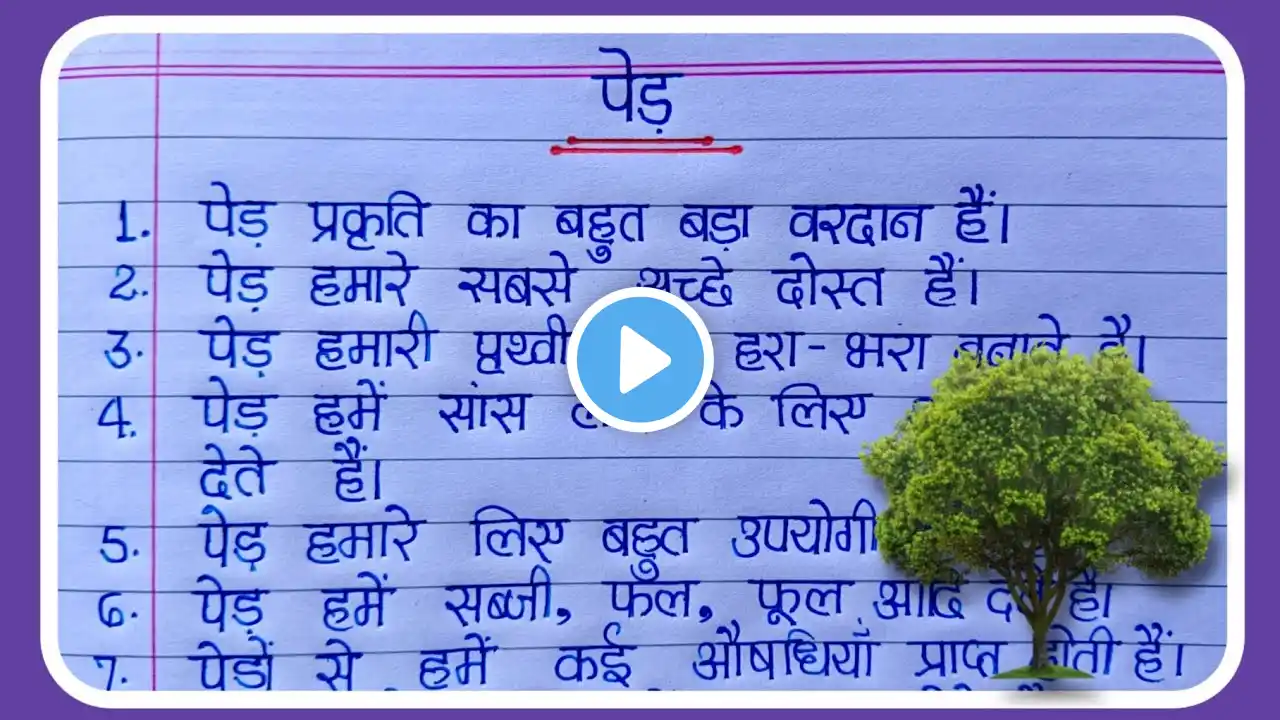 पेड़
1. पेड़ प्रकृति का बहुत बड़ा वरदान हैं।
2. पेड़ हमारे सबसे अच्छे दोस्त हैं।
3. पेड़ हमारी पृथ्वी हरा-भरा बनाते है।
4. पेड़ हमें सांस के लिए
देते हैं।
5. पेड़ हमारे लिए बहुत उपयोगी
6. पेड़ हमें सब्जी, फल, फूल आदि देते है।
7. पेड़ों से हमें कई औषधियाँ प्राप्त होती हैं।